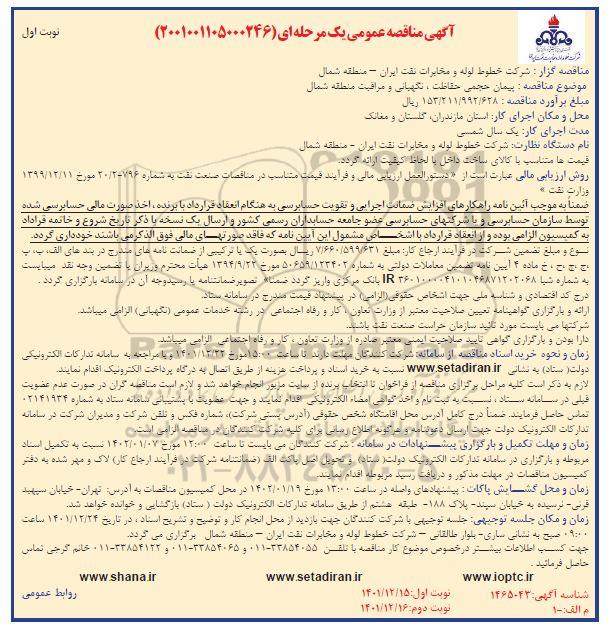 آگهی مناقصه عمومی یک مرحله ای (۲۰۰۱۰۰۱۱۰۵۰۰۰۲۴۶)
نوبت اول
مناقصه گزار : شرکت خطوط لوله و مخابرات نفت ایران – منطقه شمال
موضوع مناقصه : پیمان حجمی حفاظت ، نگهبانی و مراقبت منطقه شمال
مبلغ برآورد مناقصه : ۱۵۳/۲۱۱/۹۹۲/۶۲۸ ریال
محل و مکان اجرای کار: استان مازندران، گلستان و مغانک
مدت اجرای کار: یک سال شمسی
نام دستگاه نظارت: شرکت خطوط لوله و مخابرات نفت ایران – منطقه شمال
قیمت ها متناسب با کالای ساخت داخل با لحاظ کیفیت ارائه گردد.
روش ارزیابی مالی عبارت است از «دستورالعمل ارزیابی مالی و فرآیند قیمت متناسب در مناقصات صنعت نفت به شماره ۷۹۶-۲۰/۲ مورخ ۱۳۹۹/۱۲/۱۱
وزارت نفت »
ضمناً به موجب آئین نامه راهکارهای افزایش ضمانت اجرایی و تقویت حسابرسی به هنگام انعقاد قرارداد با برنده ، اخذ صورت مالی حسابرسی شده
توسط سازمان حسابرسی و یا شرکتهای حسابرسی عضو جامعه حسابداران رسمی کشور و ارسال یک نسخه با ذکر تاریخ شروع و خاتمه قراداد
به کمیسیون الزامی بوده و از انعقاد قرارداد با اشخاص مشمول این آیین نامه که فاقد صورتهای مالی فوق الذکر می باشند خودداری گردد.
نوع و مبلغ تضمین شرکت در فرآیند ارجاع کار: مبلغ ۷/۶۶۰/۵۹۹/۶۳۱ ریال بصورت یک یا ترکیبی از ضمانت نامه های مندرج در بند های الف، ب، پ
،ج، چ، ح ، خ ماده ۴ آیین نامه تضمین معاملات دولتی به شماره ۱۲۳۴۰۲/ت۵۰۶۵۹ مورخ ۱۳۹۴/۹/۲۲ هیأت محترم وزیران یا تضمین وجه نقد میبایست
به شماره شبا IR ۳۶۰۱۰۰۰۰۴۱۰۱۰۴۶۸۷۱۲۰۲۰۶۸ بانک مرکزی واریز گردد ضمناً" تصویرضمانتنامه یا رسیدوجه آن در سامانه بارگزاری گردد .
درج کد اقتصادی و شناسه ملی جهت اشخاص حقوقی(الزامی) در پیشنهاد قیمت مندرج در سامانه ستاد
ارائه و بارگزاری گواهینامه تعیین صلاحیت معتبر از وزارت تعاون ، کار و رفاه اجتماعی در رشته خدمات عمومی (نگهبانی) الزامی میباشد.
شرکتها می بایست مورد تائید سازمان حراست صنعت نفت باشند.
دارا بودن و بارگزاری گواهی تایید صلاحیت ایمنی معتبر صادره از وزارت تعاون ، کار و رفاه اجتماعی الزامی میباشد.
زمان و نحوه خرید اسناد مناقصه از سامانه: شرکت کنندگان مهلت دارند تا ساعت ۱۵:۰۰ مورخ ۱۴۰۱/۱۲/۲۲ با مراجعه به سامانه تدارکات الکترونیکی
دولت( ستاد) به نشانی www.setadiran.ir نسبت به خرید اسناد و پرداخت هزینه از طریق اتصال به درگاه پرداخت الکترونیک اقدام نمایند.
لازم به ذکر است کلیه مراحل برگزاری مناقصه از فراخوان تا انتخاب برنده از سایت مزبور انجام خواهد شد و لازم است مناقصه گران در صورت عدم عضویت
قبلی در سامانه ستاد ، نسبت به ثبت نام و اخذ گواهی امضاء الکترونیکی اقدام نمایند و جهت عضویت با پشتیبانی سامانه ستاد به شماره ۰۲۱۴۱۹۳۴
تماس حاصل فرمایند. ضمناً درج کامل آدرس محل اقامتگاه شخص حقوقی (آدرس پستی شرکت)، شماره فکس و تلفن شرکت و مدیران شرکت در سامانه
تدارکات الکترونیک دولت جهت ارسال دعوتنامه و هرگونه اطلاع رسانی برای کلیه شرکت کنندگان در مناقصه الزامی است.
زمان و مهلت تکمیل و بارگزاری پیشنهادات در سامانه : شرکت کنندگان می بایست تا ساعت ۱۲:۰۰ مورخ ۱۴۰۲/۰۱/۰۷ نسبت به تکمیل اسناد
مربوطه و بارگزاری در سامانه تدارکات الکترونیک دولت( ستاد) و تحویل اصل پاکت الف (ضمانتنامه شرکت در فرآیند ارجاع کار) لاک و مهر شده به دفتر
کمیسیون مناقصات در مهلت مذکور و دریافت رسید مربوطه اقدام نمایند.
زمان و محل گشایش پاکات : پیشنهادهای واصله در ساعت ۱۳:۰۰ مورخ ۱۴۰۲/۰۱/۱۹ در محل کمیسیون مناقصات به آدرس: تهران- خیابان سپهبد
قرنی- نرسیده به خیابان سپند- پلاک ۱۸۸- طبقه هشتم از طریق سامانه تدارکات الکترونیک دولت ( ستاد) بازگشایی و خوانده خواهد شد.
زمان و مکان جلسه توجیهی: جلسه توجیهی با شرکت کنندگان جهت بازدید از محل انجام کار و توضیح و تشریح اسناد ، در تاریخ ۱۴۰۱/۱۲/۲۴ ساعت
۰۹:۰۰ صبح به نشانی ساری- بلوار طالقانی – شرکت خطوط لوله و مخابرات نفت ایران – منطقه شمال برگزاری می گردد.
جهت کسب اطلاعات بیشتر درخصوص موضوع کار مناقصه با تلفن ۳۳۸۵۴۰۵۵-۰۱۱ و ۳۳۸۵۴۰۶۵-۰۱۱ و ۳۳۸۵۴۱۲۲-۰۱۱ خانم گرجی تماس
حاصل فرمائید .
www.ioptc.ir www.setadiran.ir www.shana.ir
شناسه آگهی:۱۴۶۵۰۴۳ نوبت اول:۱۴۰۱/۱۲/۱۵ روابط عمومی
م الف:-۱ نوبت دوم:۱۴۰۱/۱۲/۱۶